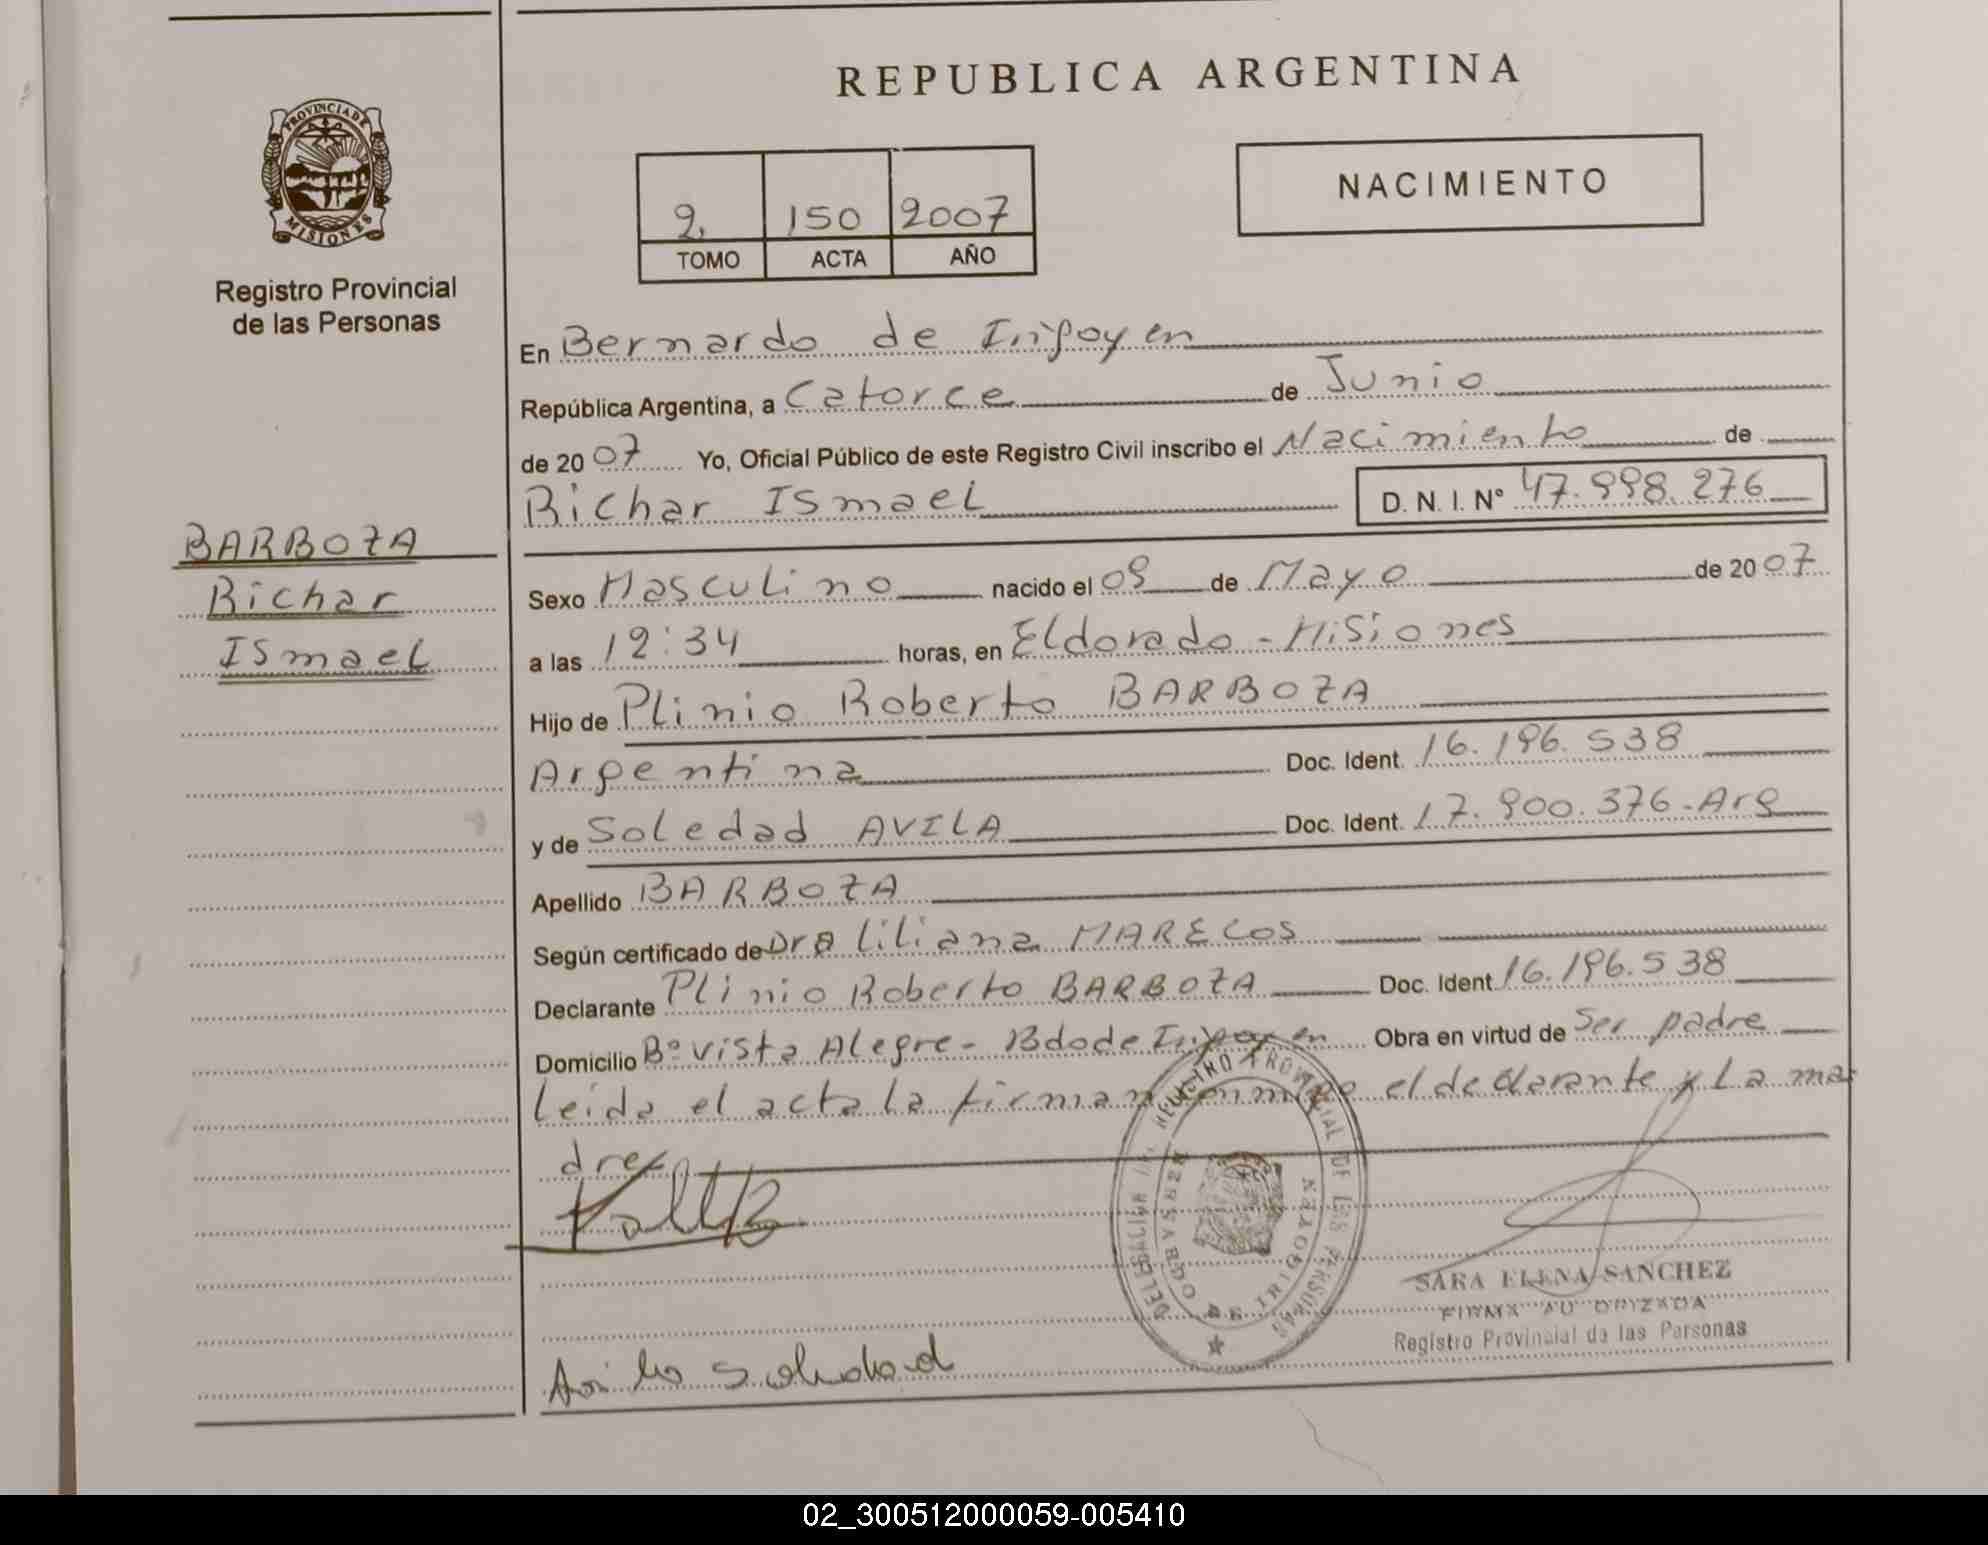 PROVINCIA DE
MISIONES
Registro Provincial
de las Personas
BARBOZA
Richar
Ismael
REPUBLICA ARGENTINA
NACIMIENTO
2 150 2007
TOMO ACTA AÑO
En Bernardo de Irigoyen
República Argentina, a Catorce de Junio
de 2007 Yo, Oficial Público de este Registro Civil inscribo el Nacimiento de
Richar Ismael D. N. I. Nº 47.998.276
Sexo Masculino nacido el 09 de Mayo de 2007
a las 12:34 horas, en Eldorado - Misiones
Hijo de Plinio Roberto BARBOZA
Argentina Doc. Ident. 16.196.538
y de Soledad AVILA Doc. Ident. 17.900.376-Arg
Apellido BARBOZA
Según certificado de Dra Liliana MARECOS
Declarante Plinio Roberto BARBOZA Doc. Ident 16.196.538
Domicilio Bº Vista Alegre - Bdo de Irigoyen Obra en virtud de Ser padre
Leida el acta la firman conmigo el declarante y La ma
dre
DELEGACION REGISTRO PROVINCIAL DE LAS PERSONAS
BERNARDO DE IRIGOYEN
SARA ELENA SANCHEZ
FIRMA AUTORIZADA
Registro Provincial de las Personas
Avila Soledad
02_300512000059-005410